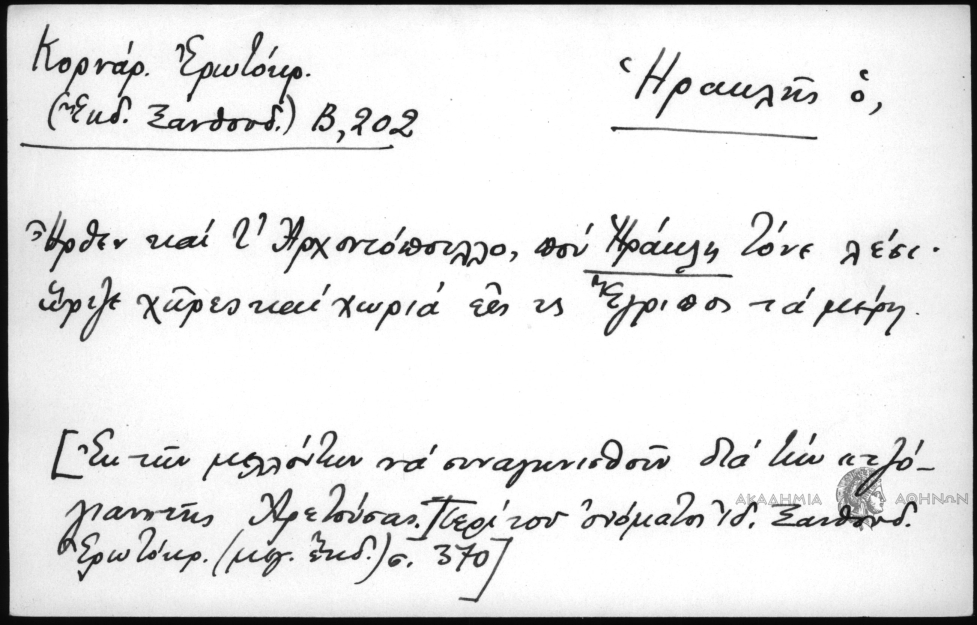 Κορνάρ. Ἐρωτόκρ.
(Ἔκδ. Ξανθουδ.) Β, 202
Ἡρακλῆς ὁ,
Ἦρθεν καί τ' Ἀρχοντόπουλλο, πού Ἡράκλη τόνε λέσι·
ὥριζε χῶρες καί χωριά εἰς τς Ἔγριπος τά μέρη.
[Ἐκ τῶν μελλόντων νά συναγωνισθοῦν διά τήν γκιό-
γιαν τῆς Ἀρετούσας. Περί του ὀνόματος ἰδ. Ξανθουδ.
Ἐρωτόκρ. (μεγ. ἔκδ.) σ. 370]
ΑΚΑΔΗΜΙΑ ΑΘΗΝΩΝ